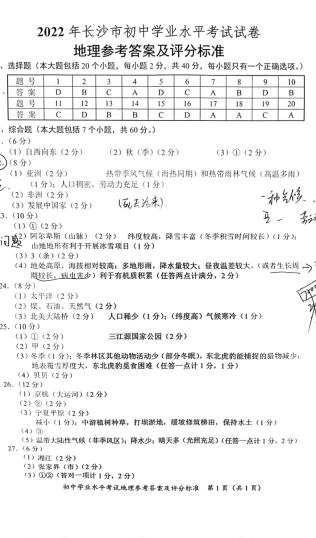 2022 年长沙市初中学业水平考试试卷
地理参考答案及评分标准
、选择题（本大题包括20个小题，每小题2分，共40分，每小题只有一个正确选项。）
题 号 1 2 3 4 5 6 7 8 9 10
答 案 D B C A D C A B D C
题 号 11 12 13 14 15 16 17 18 19 20
答 案 A C D B C A B D B A
、综合题（本大题包括7个小题，共60分。）
（6分）
（1）自西向东（2分） （2）秋（季）（2分） （3）①（2分）
（8分）
（1）亚洲（2分） 热带季风气候（雨热同期）和热带雨林气候（高温多雨）
（1分）；人口稠密，劳动力充足（1分）
（2）非洲（2分）
（3）发展中国家（2分）
一种气候
3.（10分）
（1）①（2分）
问题
（2）阿尔卑斯（山脉）（2分） 纬度较高，降雪丰富（冬季积雪时间较长）（1分）；
山地地形有利于开展冰雪项目（1分）
（3）3（条）（2分）
（4）地处高原，海拔相对较高；多地形雨，降水量较大；昼夜温差较大，（或者生长周
期较长，病虫害少）利于有机质积累（任答两点计满分，2分）
24.（8分）
（1）太平洋（2分）
（2）煤、石油、天然气（2分）
（3）北美大陆桥（2分） 人口稀少（1分）；（纬度高）气候寒冷（1分）
25.（10分）
（1）①（2分） 三江源国家公园（2分）
（2）甲（2分）
（3）冬季（1分）；冬季林区其他动物活动少（部分冬眠），东北虎的能捕捉的猎物减少；
地表覆雪厚度大，东北虎的觅食困难（任答一点计1分，1分）
（4）贝贝（2分）
26.（12分）
（1）京杭（大运河）（2分）
（2）②（2分）
（3）宁夏平原（2分）
减小（1分）；中游植树种草，打坝淤地，缓坡修筑梯田，保持水土（1分）
（4）③
（5）温带大陆性气候（非季风区）；降水少；晴天多（光照充足）（任答一点计1分，2分）
27.（6分）
（1）湘江（2分）
（2）张家界（市）（2分）
（3）①②（答对一项计1分，2分）
初中学业水平考试地理参考答案及评分标准 第1页（共1页）